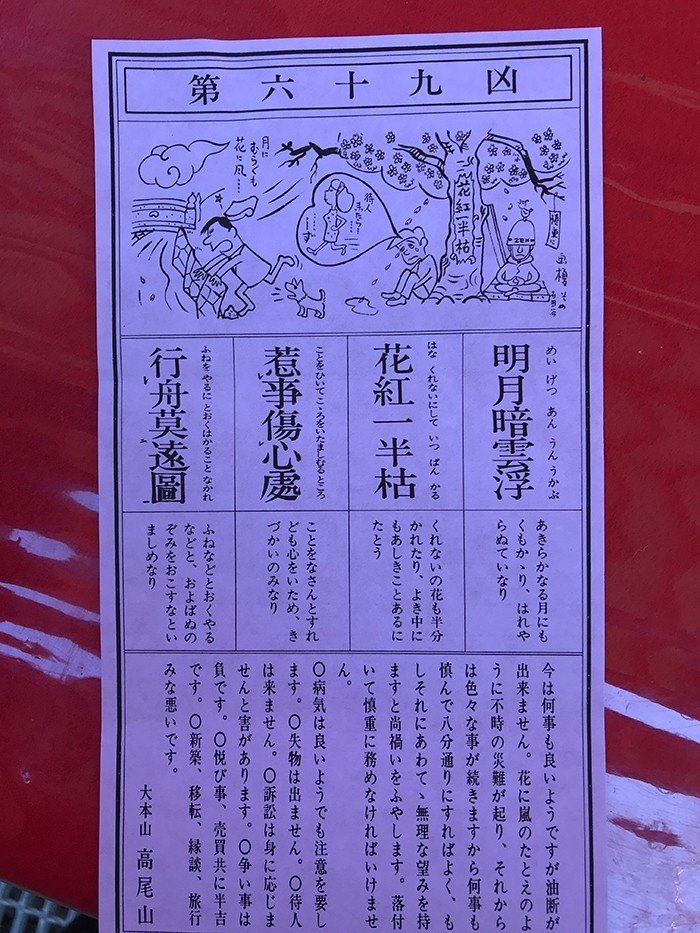 第六十九凶
月に
むらくも
花に風……
待人
来たらず……
花紅一半枯
慎重に
めい げつ あん うん うかぶ
明月暗雲浮
あきらかなる月にも
くもかゝり、はれや
らぬていなり
はな くれないにして いつ ぱん かる
花紅一半枯
くれないの花も半分
かれたり、よき中に
もあしきことあるに
たとう
ことをひいてこゝろをいたましむるところ
惹事傷心處
ことをなさんとすれ
ども心をいため、き
づかいのみなり
ふねを やるに とおくはかること なかれ
行舟莫遠圖
ふねなどとおくやる
などと、およばぬの
ぞみをおこすなとい
ましめなり
今は何事も良いようですが油断が
出来ません。花に嵐のたとえのよ
うに不時の災難が起り、それから
は色々な事が続きますから何事も
慎んで八分通りにすればよく、も
しそれにあわてゝ無理な望みを持
ますと尚禍いをふやします。落付
いて慎重に務めなければいけませ
ん。
〇病気は良いようでも注意を要し
ます。〇失物は出ません。〇待人
は来ません。〇訴訟は身に応じま
せんと害があります。〇争い事は
負です。〇悦び事、売買共に半吉
です。〇新築、移転、縁談、旅行
みな悪いです。
大本山 高尾山